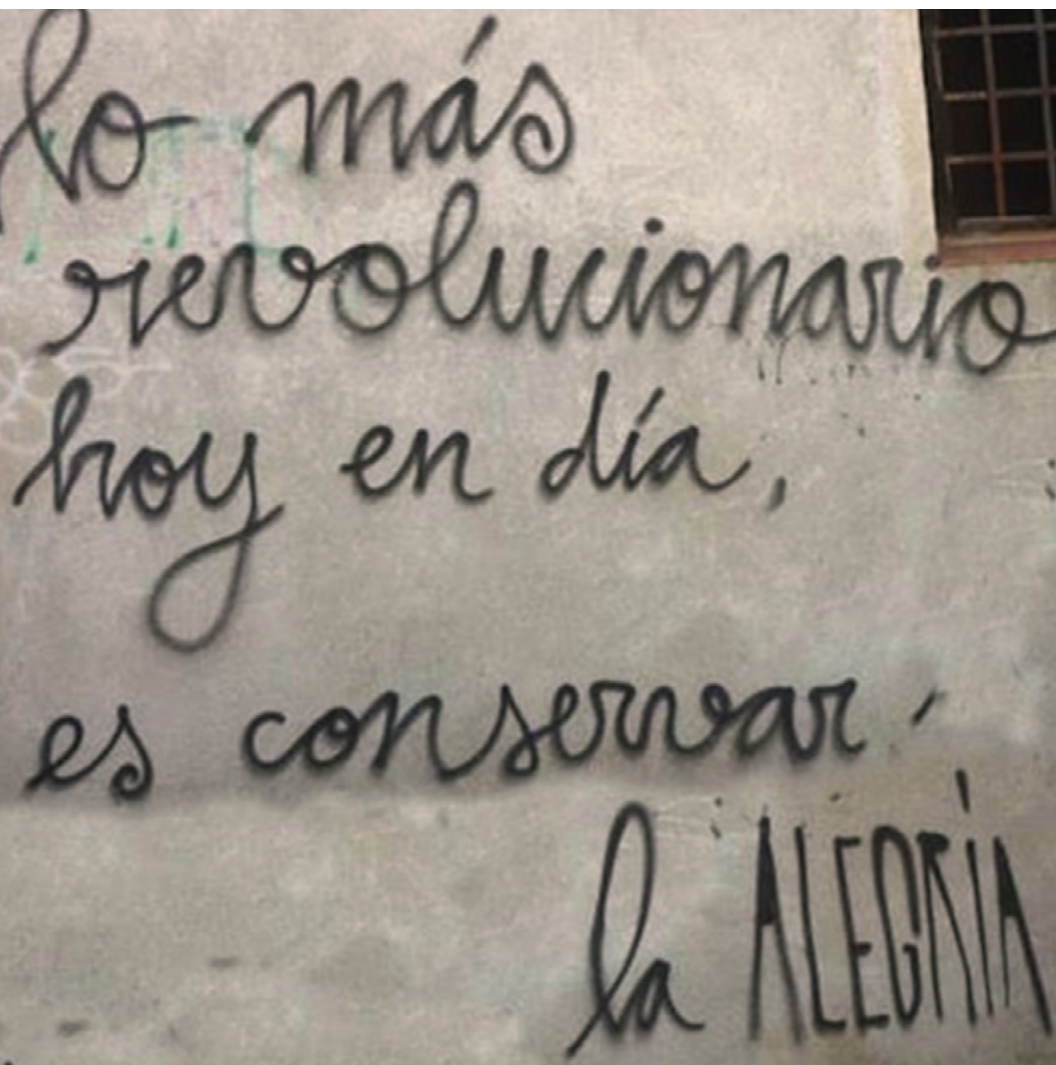 lo más
revolucionario
hoy en día,
es conservar
la ALEGRÍA